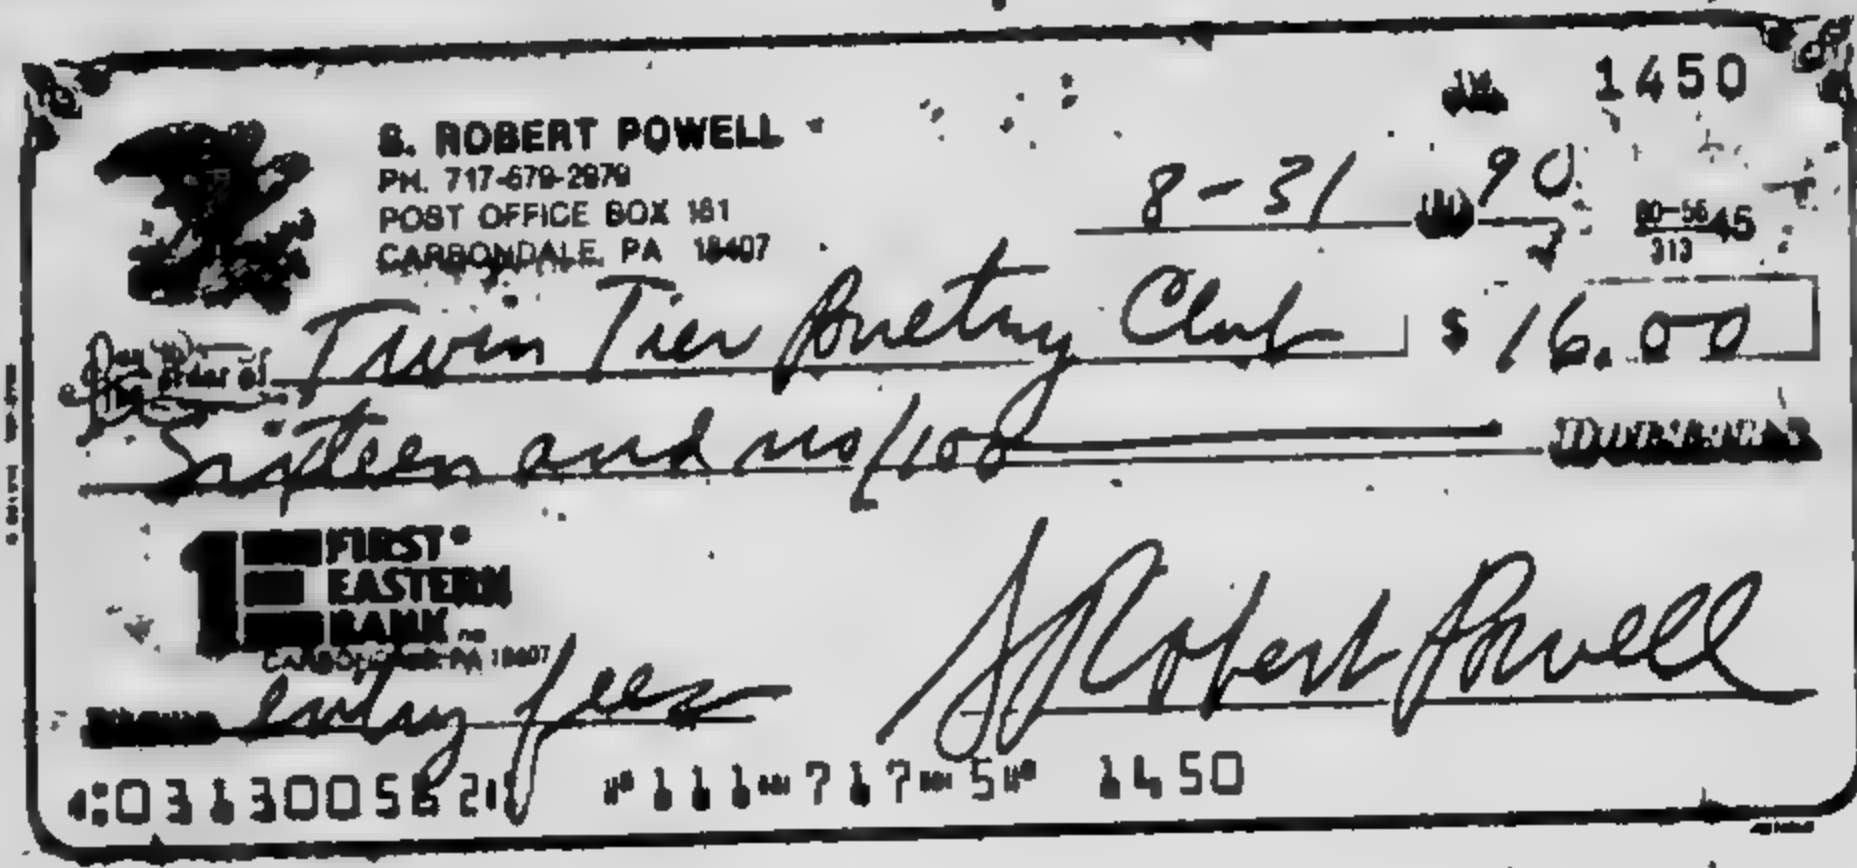 1450
S. ROBERT POWELL
PH. 717-679-2979
POST OFFICE BOX 161
CARBONDALE, PA 18407
8-31 19 90
60-56
313
45
Pay to the order of Twin Tier Poultry Club $ 16.00
Sixteen and no/100 DOLLARS
FIRST
EASTERN
BANK na
CARBONDALE, PA 18407
entry fees S Robert Powell
031300562 111 717 5 1450